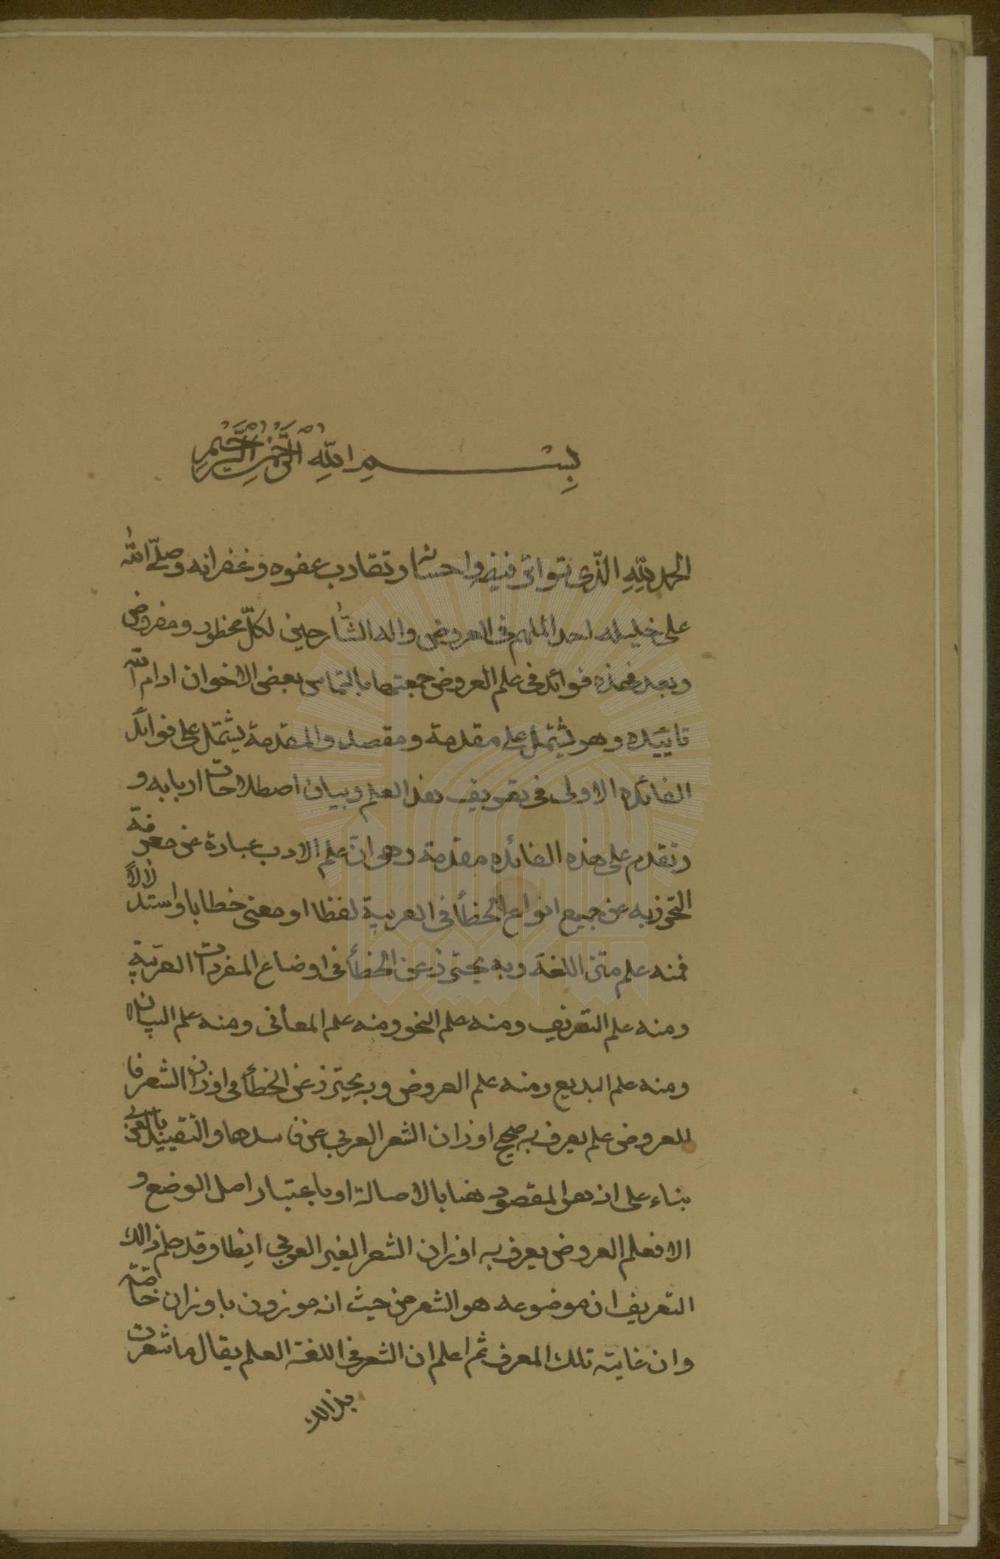 بسم الله الرحمن الرحيم
الحمد لله الذى تواتر فيض واحسانه وتقارب عفوه وغفرانه وصلى الله
على خليله احمد الملهم فى العروض واله الشارحين لكل محظور ومفروض
وبعد فهذه فوائد فى علم العروض جمعتها بالتماس بعض الاخوان ادام الله
تاييده وهو يشتمل على مقدمة ومقصد والمقدمة يشتمل على فوائد
الفائده الاولى فى تعريف هذ العلم وبيان اصطلاحات اربابه و
ونقدم على هذه الفائده مقدمة وهى ان علم الادب عبارة عن معرفة
التحرز به عن جميع انواع الخطأ فى العربية لفظا او معنى خطابا واستدلالا
فمنه علم متن اللغة وبه يحترز عن الخطأ فى اوضاع المفردات العربية
ومنه علم التصريف ومنه علم النحو ومنه علم المعانى ومنه علم البيان
ومنه علم البديع ومنه علم العروض وبه يحترز عن الخطأ فى اوزان الشعر فا
للعروض علم يعرف به صحيح اوزان الشعر العربى عن فاسدها والتقييد بالعربى
بناء على انه هو المقصود هنا بالاصالة او باعتبار اصل الوضع و
الا فعلم العروض يعرف به اوزان الشعر الغير العربى ايضا وقد علم ذالك
التعريف ان موضوعه هو الشعر من حيث انه موزون باوزان خاصة
وان غايته تلك المعرف ثم اعلم ان الشعر فى اللغة العلم يقال ما شعرت
بذالك